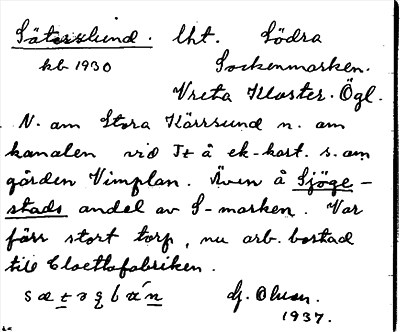 Säterslund. lht. Södra
kb 1930 Sockenmarken.
Vreta Kloster. Ögl.
N. om Stora Kärrsund n. om
kanalen vid Tt å ek-kart. s. om
gården Vimplan. Även å Sjöge-
stads andel av S-marken. Var
förr stort torp, nu arb. bostad
till Cloettafabriken.
G. Olson.
1937.